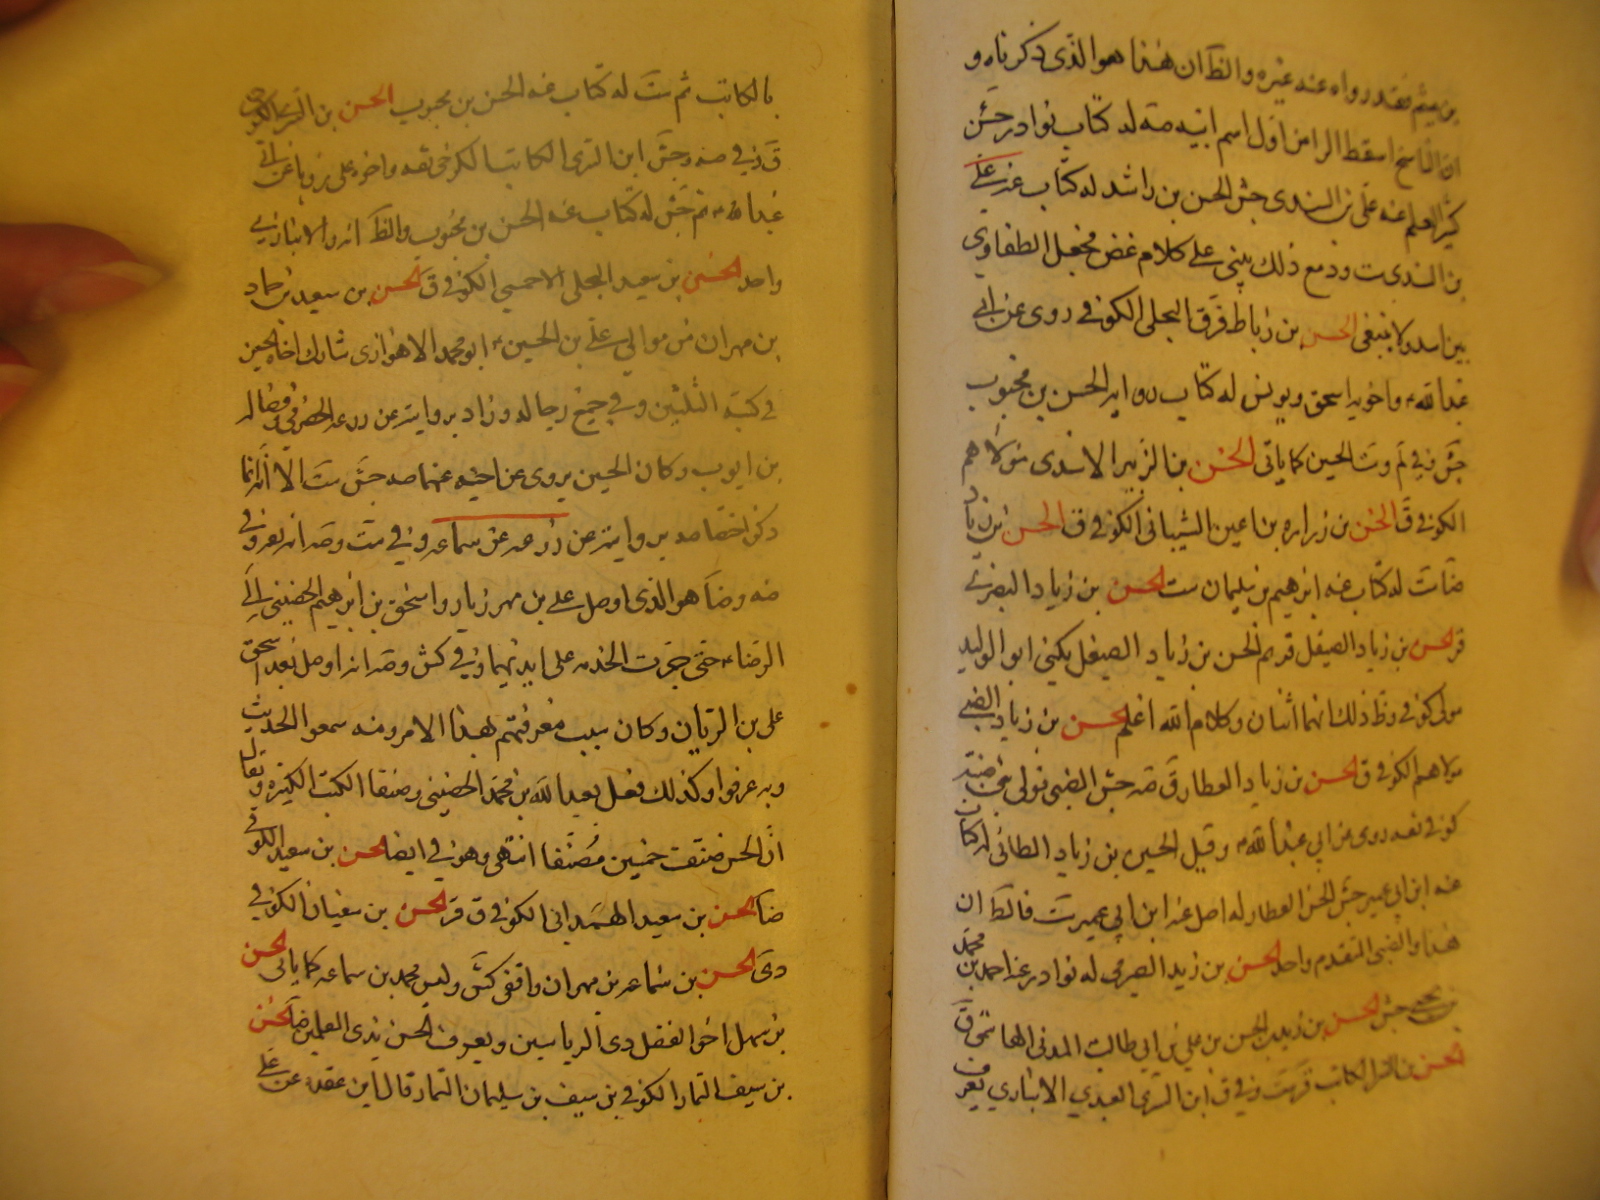 بن ميثم فقد رواه عنه غيره والظ ان هذا هو الذى ذكرناه و
ان الناسخ اسقط الرا من اول اسم ابيه صه له كتاب نوادر جش
كثير العلم عنه على بن السندى جش الحسن بن راشد له كتاب عنه على
بن السندى ست ود مع ذلك يبنى على كلام غض فجعل الطفاوى
بين اسد ولا ينبغى الحسن بن رباط ق ق البجلى الكوفى روى عن ابى
عبد الله ء واخويه اسحق ويونس له كتاب رواية الحسن بن محبوب
جش وفى لم وست الحسين كما ياتى الحسن بن الزبير الاسدى مولاهم
الكوفى ق الحسن بن زراره بن اعين الشيبانى الكوفى ق الحسن بن زياد
ضا ست له كتاب عنه ابرهيم بن سليمان ست الحسن بن زياد البصرى
قر الحسن بن زياد الصيقل قر ثم الحسن بن زياد الصيقل يكنى ابو الوليد
مولى كوفى وظ ذلك انهما اثنان وكلام الله اعلم الحسن بن زياد الضبى
مولاهم الكوفى ق الحسن بن زياد العطار ق صه جش الضبى مولى بنى ضبة
كوفى ثقه روى عن ابى عبد الله ء وقيل الحسن بن زياد الطائى له كتاب
عنه ابن ابى عمير جش الحسن العطار له اصل عنه ابن ابى عمير ست فالظ ان
هذا والضبى المتقدم واحد الحسن بن زيد الصيرفى له نوادر عنه احمد بن محمد
جش الحسن بن زيد بن الحسن بن على بن ابى طالب المدنى الهاشمى ق
الحسن بن السرى الكاتب ق ست وفى ق ابن السرى العبدي الانباري يعرف
بالكاتب ثم ست له كتاب عنه الحسن بن محبوب الحسن بن السرى الكرخى
ق وفى صه وجش ابن السرى الكاتب الكرخى ثقه واخوه على رويا عن ابى
عبد الله ء ثم جش له كتاب عنه الحسن بن محبوب والظ انه والانبارى
واحد الحسن بن سعيد البجلى الاحمسى الكوفى ق الحسن بن سعيد بن حماد
بن مهران من موالي على بن الحسين ء ابو محمد الاهوازى شارك اخاه الحسين
فى كتبه الثلثين وفى جميع رجاله وزاد بروايته عن زرعه الحضرمى وفضاله
بن ايوب وكان الحسين يروى عن اخيه عنهما صه جش ست الا انه انما
ذكر اختصاصه بروايته عن زرعه عن سماعه وفى ست وصه انه يعرف
صه وضا هو الذى اوصل على بن مهزيار واسحق بن ابرهيم الحضينى الى
الرضا ء حتى جرت الخدمه على ايديهما وفى كش وصه انه اوصل بعد اسحق
على بن الريان وكان سبب معرفتهم لهذا الامر ومنه سمعوا الحديث
وبه عرفوا وكذلك فعل بعبد الله بن محمد الحضينى وصنفا الكتب الكثيرة ويقال
ان الحسن صنف خمسين مصنفا انتهى وهو فى ايضا الحسن بن سعيد الكوفى
ضا الحسن بن سعيد الهمدانى الكوفى ق قر الحسن بن سفيان الكوفى
دى الحسن بن سماعه بن مهران واقفى كش وليس محمد بن سماعه كما ياتى الحسن
بن سهل اخو الفضل ذى الرياستين ويعرف الحسن بذى العلمين ضا الحسن
بن سيف التمار الكوفى بن سيف بن سليمان التمار قال ابن عقده عن على